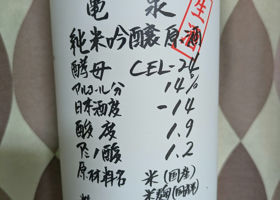 亀泉
生酒
純米吟醸原酒
酵母 CEL-24
アルコール分 14%
日本酒度 -14
酸度 1.9
アミノ酸 1.2
原材料名 米(国産)
米麹(国産米)